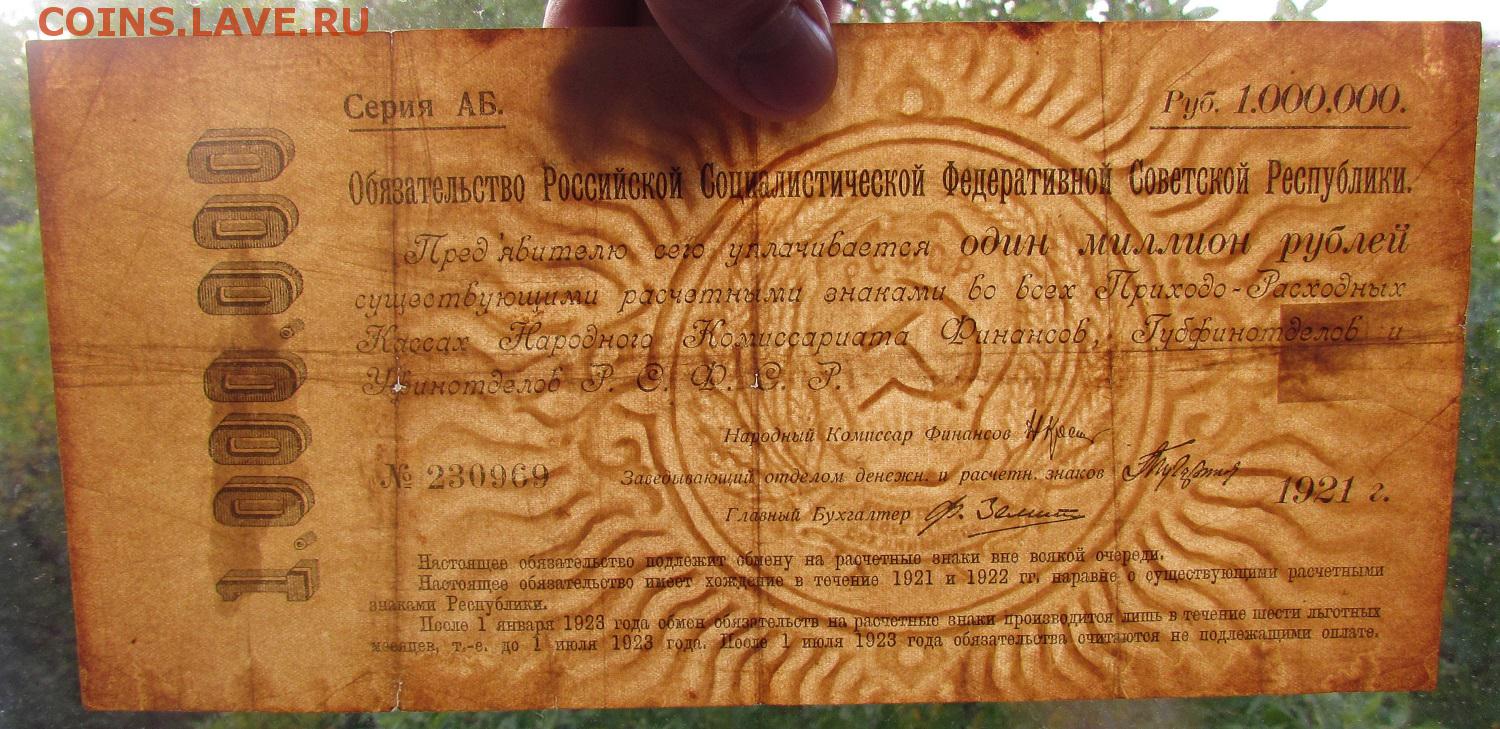 COINS.LAVE.RU
Серия АБ.
Руб. 1.000.000.
1.000.000
Обязательство Российской Социалистической Федеративной Советской Республики.
Пред'явителю сего уплачивается один миллион рублей
существующими расчетными знаками во всех Приходо-Расходных
Кассах Народного Комиссариата Финансов, Губфинотделов и
Уфинотделов Р. С. Ф. С. Р.
РСФСР
Народный Комиссар Финансов
№ 230969
Заведывающий отделом денежн. и расчетн. знаков
1921 г.
Главный Бухгалтер
Настоящее обязательство подлежит обмену на расчетные знаки вне всякой очереди.
Настоящее обязательство имеет хождение в течение 1921 и 1922 гг. наравне с существующими расчетными
знаками Республики.
После 1 января 1923 года обмен обязательств на расчетные знаки производится лишь в течение шести льготных
месяцев, т.-е. до 1 июля 1923 года. После 1 июля 1923 года обязательства считаются не подлежащими оплате.